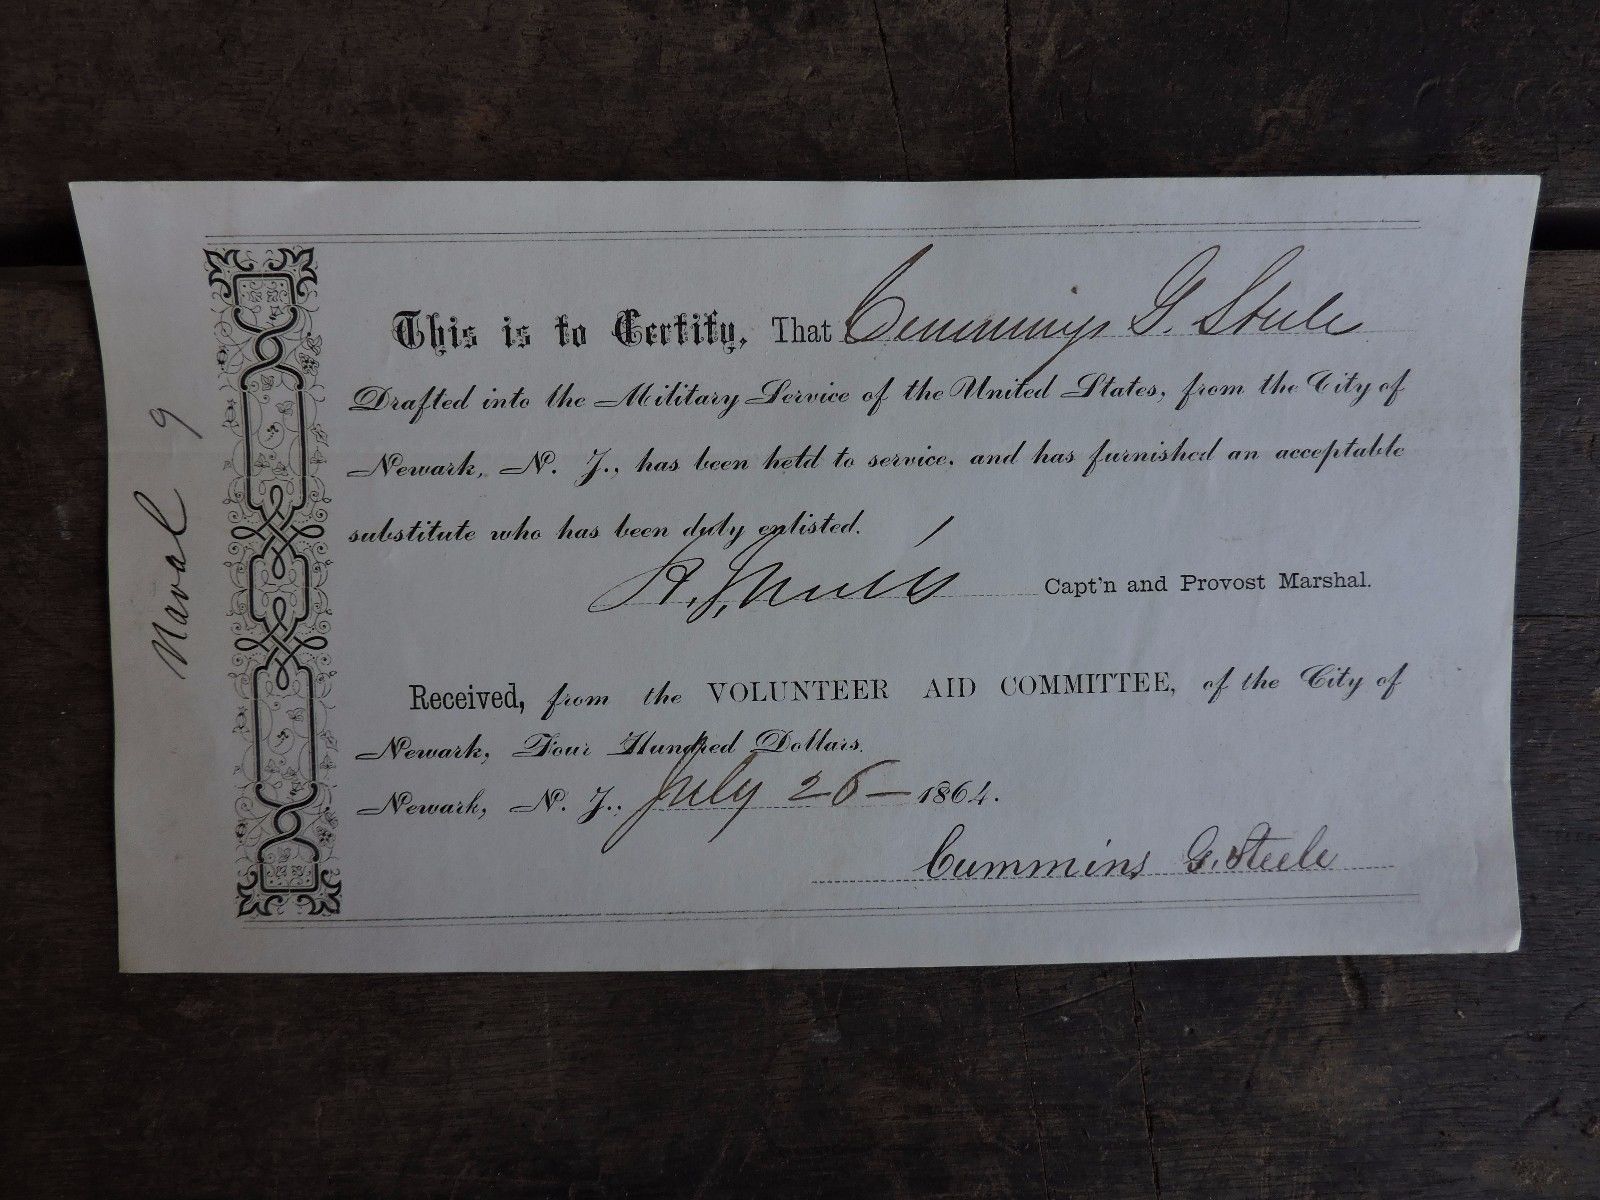 Naval 9
This is to Certify, That Cummings G. Steele
Drafted into the Military Service of the United States, from the City of
Newark, N. J., has been held to service, and has furnished an acceptable
substitute who has been duly enlisted.
Capt'n and Provost Marshal.
Received, from the VOLUNTEER AID COMMITTEE, of the City of
Newark, Four Hundred Dollars.
Newark, N. J., July 26 — 1864.
Cummins G. Steele